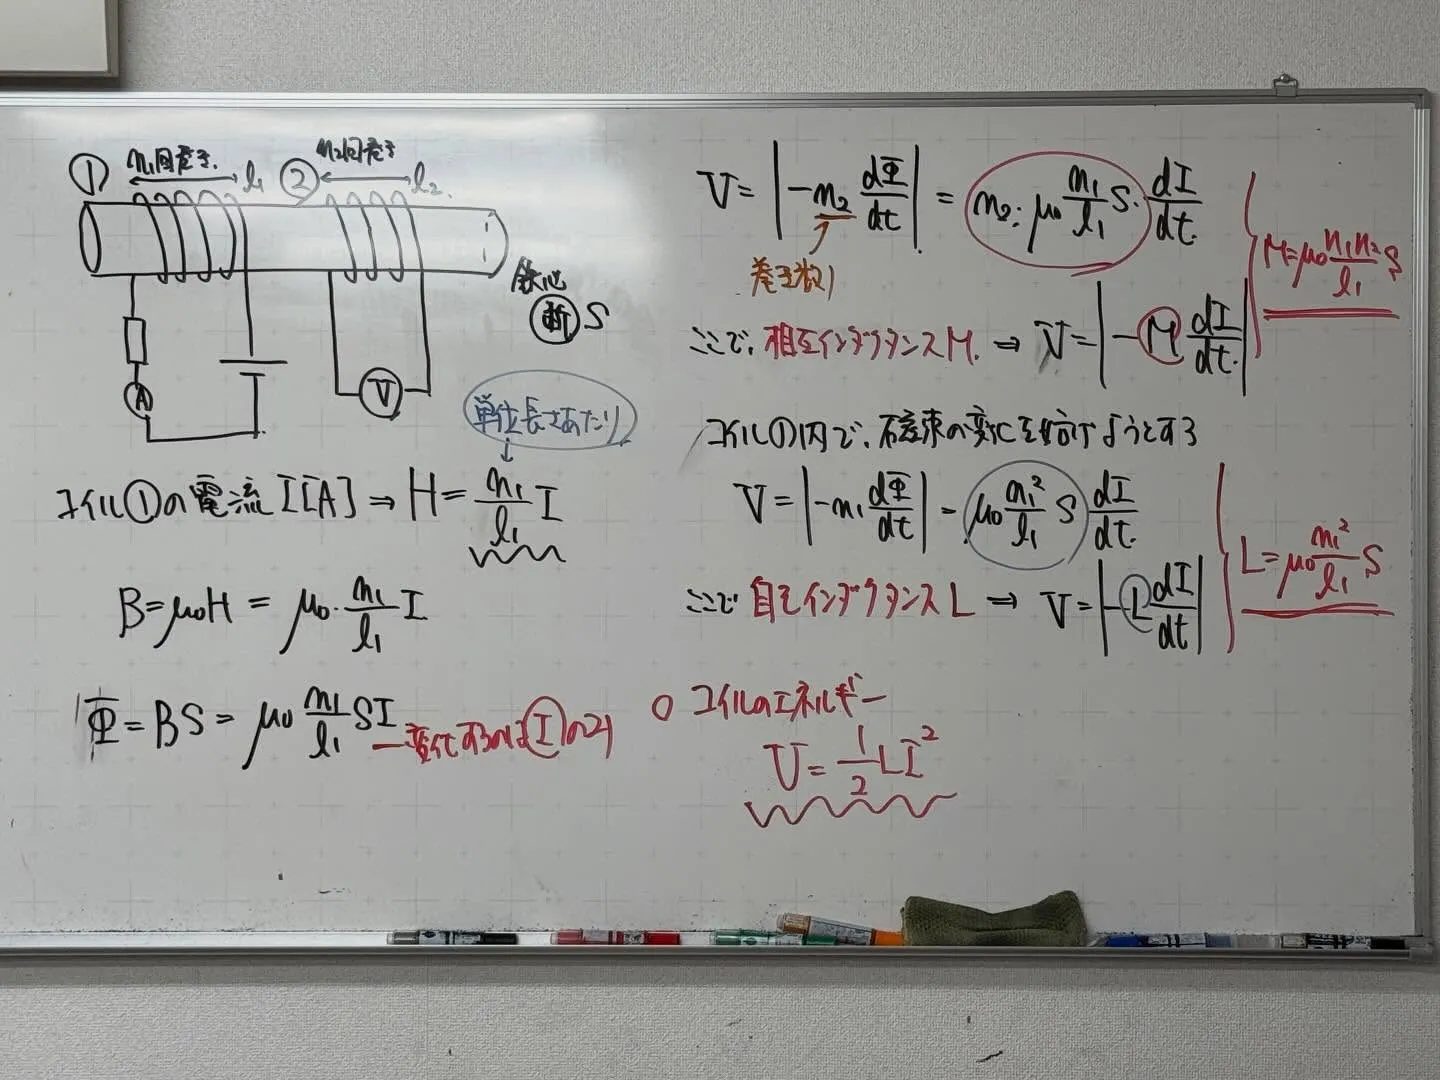 ① n₁回巻き l₁ ② n₂回巻き l₂
鉄心
断 S
A
V
単位長さあたり
コイル①の電流 I[A] ⇒ H = n₁/l₁ I
B = μ₀H = μ₀・n₁/l₁ I
Φ = BS = μ₀ n₁/l₁ SI
変化するのは I のみ
V = |-n₂ dΦ/dt| = n₂・μ₀ n₁/l₁ S・dI/dt
巻き数
M = μ₀ n₁n₂/l₁ S
ここで、相互インダクタンス M. ⇒ V = |-M dI/dt|
コイル①内で、磁束の変化を妨げようとする
V = |-n₁ dΦ/dt| = μ₀ n₁²/l₁ S dI/dt
L = μ₀ n₁²/l₁ S
ここで 自己インダクタンス L ⇒ V = |-L dI/dt|
○ コイルのエネルギー
U = 1/2 LI²